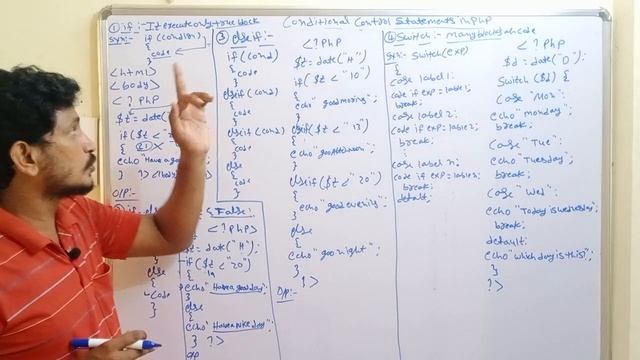 Conditional Control Statements in PHP
① if :- It execute only true block
syn:- if (condition)
{
code
}
<html>
<body>
< ? PHP
$t = date("H")
if($t <"
echo "Have a
O/P:-
else
{
code
}
False:-
< ? PHP
$t = date("H");
if($t <"20")
{
echo "Have a good day";
}
else
{
echo "Have a nice day";
} ?>
③ elseif :-
if (cond)
{
code
}
elseif (cond)
{
code
}
elseif (cond)
{
code
}
else
{
code
}
< ? PHP
$t = date("H")
if($t <"10")
{
echo "good moring";
}
elseif($t <"
{
echo
}
elseif($t <"20")
{
echo "good evening";
}
else
{
echo "goo night";
}
?>
O/P:-
④ Switch :- many blocks of code
syn:- Switch (exp)
{
case label 1:
code if exp = lable 1;
break;
case label 2:
code if exp = lable 2;
break;
case label n:
code if exp = lable n;
break;
default:
< ? PHP
$d = date("D");
Switch ($d) {
Case "Mon":
echo "monday";
break;
Case "Tue":
echo "Tuesday";
break;
Case "Wed":
echo "Today is wednesday";
break;
default:
echo "which day is this";
}
?>